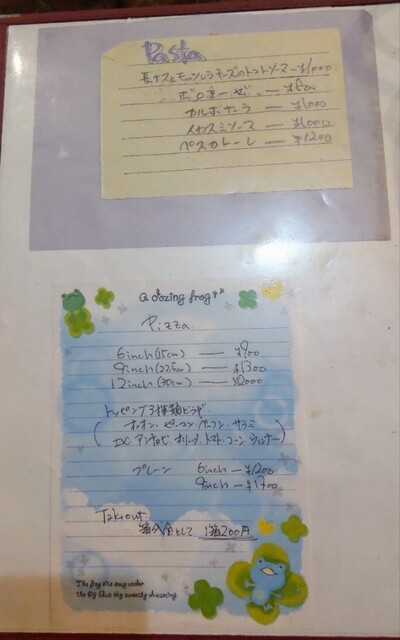 Pasta
長ナスとモッツァレラチーズのトマトソース ー ¥1000
ボロネーゼ ー ¥800
カルボナーラ ー ¥1000
イカスミソース ー ¥1000
ペスカトーレ ー ¥1200
A dozing frog
Pizza
6inch (15cm) ー ¥900
9inch (22.5cm) ー ¥1300
12inch (30cm) ー ¥2000
トッピング3種類どうぞ
オニオン ピーマン ベーコン サラミ
アンチョビ オリーブ トマト コーン ウィンナー
プレーン 6inch ー ¥1200
9inch ー ¥1700
Takeout
箱代金として 1箱200円
The frog are sing under
the big blue sky sweetly dreaming